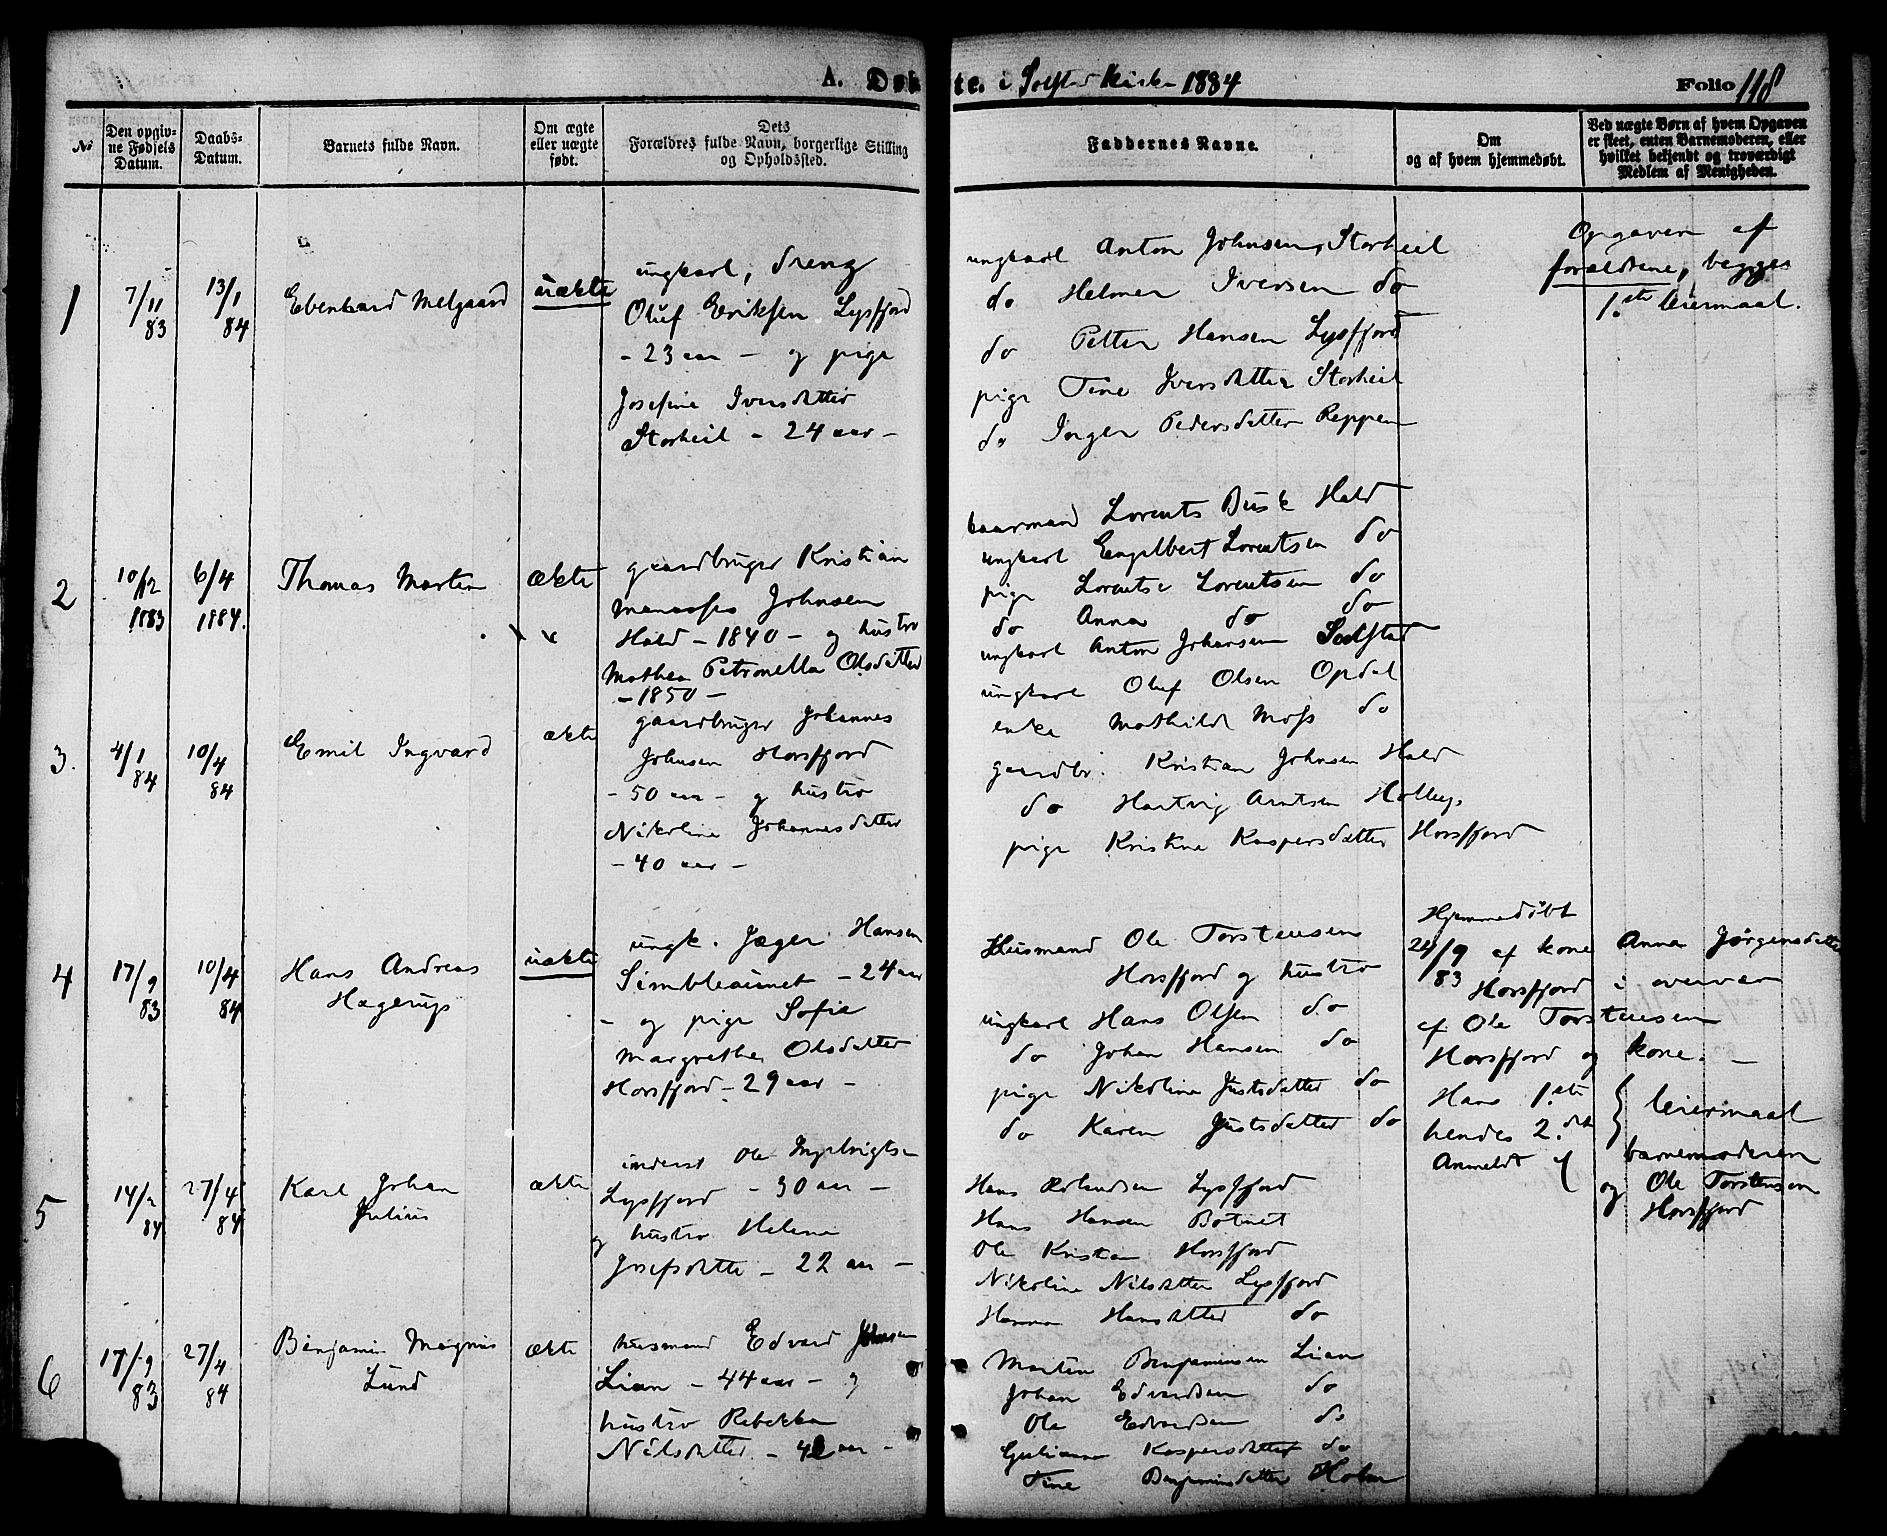 A. Døbte. i Solstad Kirke 1884
Folio 118
No
Den opgivne Fødsels Datum.
Daabs-Datum.
Barnets fulde Navn.
Om ægte eller uægte født.
Dets Forældres fulde Navn, borgerlige Stilling og Opholdssted.
Faddernes Navne.
Om og af hvem hjemmedøbt.
Ved uægte Børn af hvem Opgaven er skeet, enten Barnemoderen, eller hvilket bekjendt og troværdigt Medlem af Menigheden.
1
7/11 83
13/1 84
Eberhard Melgaard
uækte
ungkarl, dreng
Oluf Eriksen Lysfjord
- 23 aar - og pige
Josefine Iversdatter
Storheil - 24 aar -
ungkarl Anton Johnsen, Storheil
do Helmer Iversen do
do Petter Hansen Lysfjord
pige Tine Iversdatter Storheil
do Inger Pedersdatter Reppen
Opgaven af
forældrene, begges
1.ste leiermaal.
2
10/12 1883
6/4 1884.
Thomas Martin
ækte
gaardbruger Kristian
Manasses Johnsen
Hald - 1840 - og hustro
Mathea Petronella Olsdatter
- 1850 -
kaarmand Lorents Busk Hald
ungkarl Engelbert Lorentsen do
pige Lorentse Lorentsen do
do Anna do do
ungkarl Anton Johansen Solstad
3.
4/1 84
10/4 84
Emil Ingvard
ækte
gaardbruger Johannes
Johnsen Horsfjord
- 50 aar - og hustro
Nikoline Johannesdatter
- 40 aar -
ungkarl Oluf Olsen Opdal
enke Mathilde Moss do
gaardbr. Kristian Johnsen Hald
do Hartvig Arntsen
pige Kristine Kaspersdatter Horsfjord
4
17/9 83
10/4 84
Hans Andreas
Hagerup
uækte
ungk. Jæger Hansen
- 24 aar
- og pige Sofie
Margrethe Olsdatter
Horsfjord - 29 aar -
Husmand Ole Torstensen
Horsfjord og hustro
ungkarl Hans Olsen do
do Johan Hansen do
pige Nikoline Justsdatter do
do Karen Justsdatter do
Hjemmedøbt
24/9 83 af kone Anna Jørgensdatter
Horsfjord i overvær
af Ole Torstensen
Horsfjord og kone. -
Hans 1.ste
hendes 2.det } leiermaal
Anmeldt af barnemoderen
og Ole Torstensen
Horsfjord
5
14/2 84
27/4 84
Karl Johan
Julius
ækte
inderst Ole
Lysfjord - 30 aar -
og hustro Helene
Josefsdatter - 22 aar -
Hans Lysfjord
Hans Hansen Botnet
Ole Kristian Horsfjord
Nikoline Nilsdatter Lysfjord
Hanna Hansdatter do
6
17/9 83
27/4 84
Benjamin Magnus
Lund
ækte
husmand Edvard Johnsen
Lian - 44 aar - og
hustro Rebekka
Nilsdatter - aar -
Martin Benjaminsen Lian
Johan Edvardsen do
Ole Edvardsen do
Gjuliana Kaspersdatter do
Tine Benjaminsdatter Holm